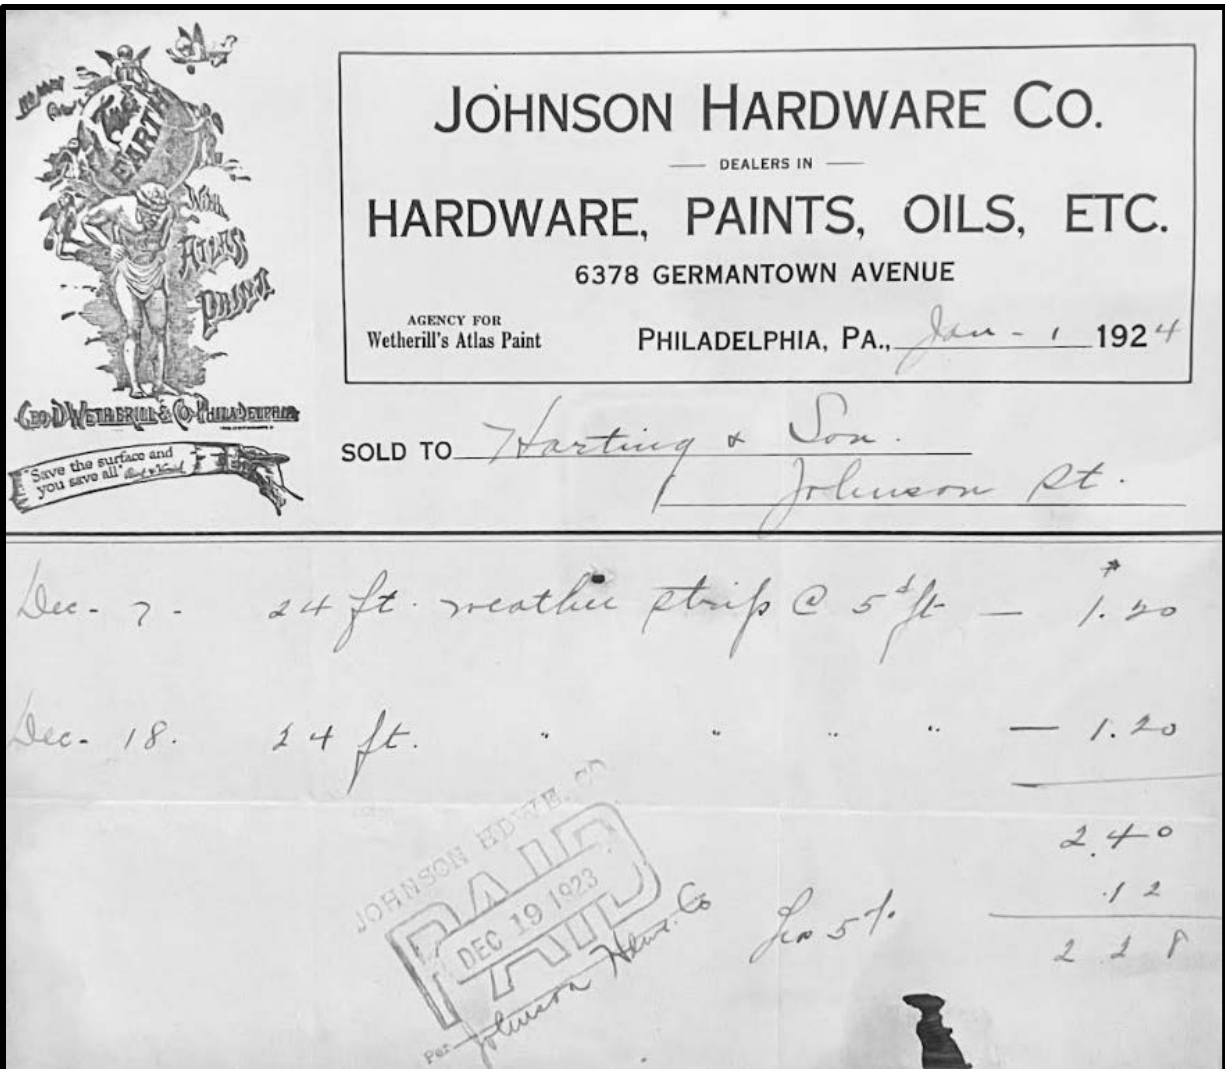 We May Cover
The
EARTH
With
ATLAS
PAINT
GEO. D. WETHERILL & CO. PHILADELPHIA
"Save the surface and
you save all"
JOHNSON HARDWARE CO.
DEALERS IN
HARDWARE, PAINTS, OILS, ETC.
6378 GERMANTOWN AVENUE
AGENCY FOR
Wetherill's Atlas Paint
PHILADELPHIA, PA., Jan - 1 1924
SOLD TO Harting & Son.
Johnson St.
Dec - 7 - 24 ft. weather strip @ 5¢ ft - $1.20
Dec - 18. 24 ft. " " " " - 1.20
2.40
Less 5% .12
2 28
JOHNSON HDWE. CO
PAID
DEC 19 1923
Per Johnson Hdwe. Co